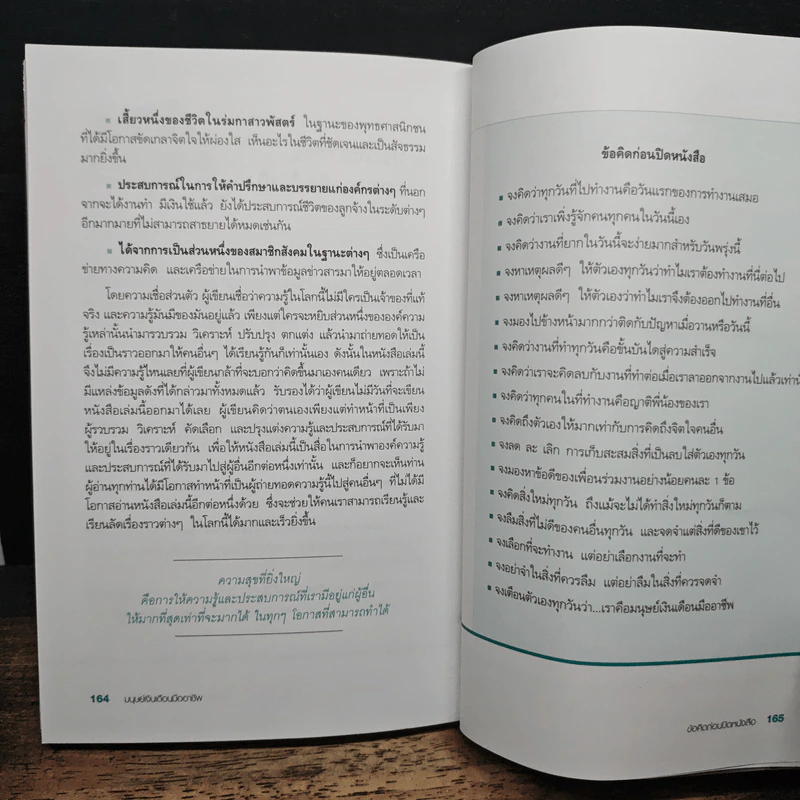 ▪ เสี้ยวหนึ่งของชีวิตในร่มกาสาวพัสตร์ ในฐานะของพุทธศาสนิกชน
ที่ได้มีโอกาสขัดเกลาจิตใจให้ผ่องใส เห็นอะไรในชีวิตที่ชัดเจนและเป็นสัจธรรม
มากยิ่งขึ้น
▪ ประสบการณ์ในการให้คำปรึกษาและบรรยายแก่องค์กรต่างๆ ที่นอก
จากจะได้งานทำ มีเงินใช้แล้ว ยังได้ประสบการณ์ชีวิตของลูกจ้างในระดับต่างๆ
อีกมากมายที่ไม่สามารถสาธยายได้หมดเช่นกัน
▪ ได้จากการเป็นส่วนหนึ่งของสมาชิกสังคมในฐานะต่างๆ ซึ่งเป็นเครือ
ข่ายทางความคิด และเครือข่ายในการนำพาข้อมูลข่าวสารมาให้อยู่ตลอดเวลา
โดยความเชื่อส่วนตัว ผู้เขียนเชื่อว่าความรู้ในโลกนี้ไม่มีใครเป็นเจ้าของที่แท้
จริง และความรู้มันมีของมันอยู่แล้ว เพียงแต่ใครจะหยิบส่วนหนึ่งขององค์ความ
รู้เหล่านั้นนำมารวบรวม วิเคราะห์ ปรับปรุง ตกแต่ง แล้วนำมาถ่ายทอดให้เป็น
เรื่องเป็นราวออกมาให้คนอื่นๆ ได้เรียนรู้กันก็เท่านั้นเอง ดังนั้นในหนังสือเล่มนี้
จึงไม่มีความรู้ไหนเลยที่ผู้เขียนกล้าที่จะบอกว่าคิดขึ้นมาเองคนเดียว เพราะถ้าไม่
มีแหล่งข้อมูลดังที่ได้กล่าวมาทั้งหมดแล้ว รับรองได้ว่าผู้เขียนไม่มีวันที่จะเขียน
หนังสือเล่มนี้ออกมาได้เลย ผู้เขียนคิดว่าตนเองเพียงแต่ทำหน้าที่เป็นเพียง
ผู้รวบรวม วิเคราะห์ คัดเลือก และปรุงแต่งความรู้และประสบการณ์ที่ได้รับมา
ให้อยู่ในเรื่องราวเดียวกัน เพื่อให้หนังสือเล่มนี้เป็นสื่อในการนำพาองค์ความรู้
และประสบการณ์ที่ได้รับมาไปสู่ผู้อื่นอีกต่อหนึ่งเท่านั้น และก็อยากจะเห็นท่าน
ผู้อ่านทุกท่านได้มีโอกาสทำหน้าที่เป็นผู้ถ่ายทอดความรู้นี้ไปสู่คนอื่นๆ ที่ไม่ได้มี
โอกาสอ่านหนังสือเล่มนี้อีกต่อหนึ่งด้วย ซึ่งจะช่วยให้คนเราสามารถเรียนรู้และ
เรียนลัดเรื่องราวต่างๆ ในโลกนี้ได้มากและเร็วยิ่งขึ้น
ความสุขที่ยิ่งใหญ่
คือการให้ความรู้และประสบการณ์ที่เรามีอยู่แก่ผู้อื่น
ให้มากที่สุดเท่าที่จะมากได้ ในทุกๆ โอกาสที่สามารถทำได้
164 มนุษย์เงินเดือนมืออาชีพ
ข้อคิดก่อนปิดหนังสือ
▪ จงคิดว่าทุกวันที่ไปทำงานคือวันแรกของการทำงานเสมอ
▪ จงคิดว่าเราเพิ่งรู้จักคนทุกคนในวันนี้เอง
▪ จงคิดว่างานที่ยากในวันนี้จะง่ายมากสำหรับวันพรุ่งนี้
▪ จงหาเหตุผลดีๆ ให้ตัวเองทุกวันว่าทำไมเราต้องทำงานที่นี่ต่อไป
▪ จงหาเหตุผลดีๆ ให้ตัวเองว่าทำไมเราจึงต้องออกไปทำงานที่อื่น
▪ จงมองไปข้างหน้ามากกว่าติดกับปัญหาเมื่อวานหรือวันนี้
▪ จงคิดว่างานที่ทำทุกวันคือขั้นบันไดสู่ความสำเร็จ
▪ จงคิดว่าเราจะคิดลบกับงานที่ทำต่อเมื่อเราลาออกจากงานไปแล้วเท่านั้น
▪ จงคิดว่าทุกคนในที่ทำงานคือญาติพี่น้องของเรา
▪ จงคิดถึงตัวเองให้มากเท่ากับการคิดถึงจิตใจคนอื่น
▪ จงลด ละ เลิก การเก็บสะสมสิ่งที่เป็นลบใส่ตัวเองทุกวัน
▪ จงมองหาข้อดีของเพื่อนร่วมงานอย่างน้อยคนละ 1 ข้อ
▪ จงคิดสิ่งใหม่ทุกวัน ถึงแม้จะไม่ได้ทำสิ่งใหม่ทุกวันก็ตาม
▪ จงลืมสิ่งที่ไม่ดีของคนอื่นทุกวัน และจดจำแต่สิ่งที่ดีของเขาไว้
▪ จงเลือกที่จะทำงาน แต่อย่าเลือกงานที่จะทำ
▪ จงอย่าจำในสิ่งที่ควรลืม แต่อย่าลืมในสิ่งที่ควรจดจำ
▪ จงเตือนตัวเองทุกวันว่า...เราคือมนุษย์เงินเดือนมืออาชีพ
ข้อคิดก่อนปิดหนังสือ 165